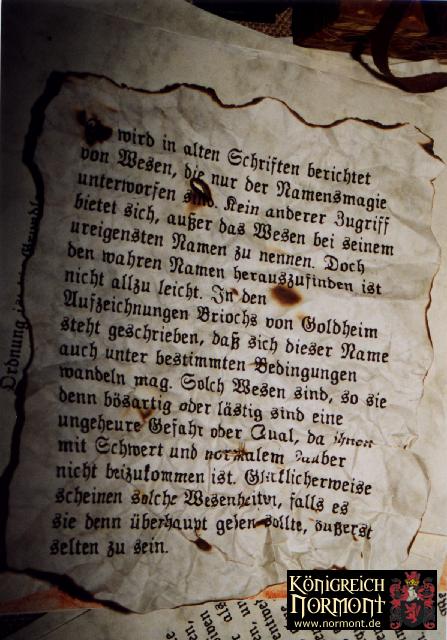 wird in alten Schriften berichtet
von Wesen, die nur der Namensmagie
unterworfen sind. Kein anderer Zugriff
bietet sich, außer das Wesen bei seinem
ureigensten Namen zu nennen. Doch
den wahren Namen herauszufinden ist
nicht allzu leicht. In den
Aufzeichnungen Briochs von Goldheim
steht geschrieben, daß sich dieser Name
auch unter bestimmten Bedingungen
wandeln mag. Solch Wesen sind, so sie
denn bösartig oder lästig sind eine
ungeheure Gefahr oder Qual, da ihnen
mit Schwert und normalem Zauber
nicht beizukommen ist. Glücklicherweise
scheinen solche Wesenheiten, falls es
sie denn überhaupt geben sollte, äußerst
selten zu sein.
Ordnung
KÖNIGREICH
NORMONT
www.normont.de